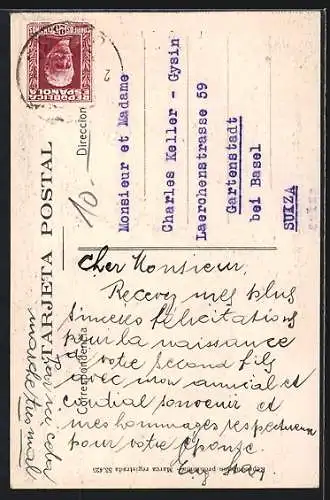 REPUBLICA
ESPAÑOLA
TARJETA POSTAL
Dirección
10-
Monsieur et Madame
Charles Keller - Gysin
Laerchenstrasse 59
Gartenstadt
bei Basel
SUIZA
Correspondencia
Cher Monsieur.
Recevez mes plus
sinceres félicitations
pour la naissance
de votre second fils
avec mon amical et
cordial souvenir et
mes hommages respectueux
pour votre épouse.
Par ici cela
marche très mal
Marca registrada